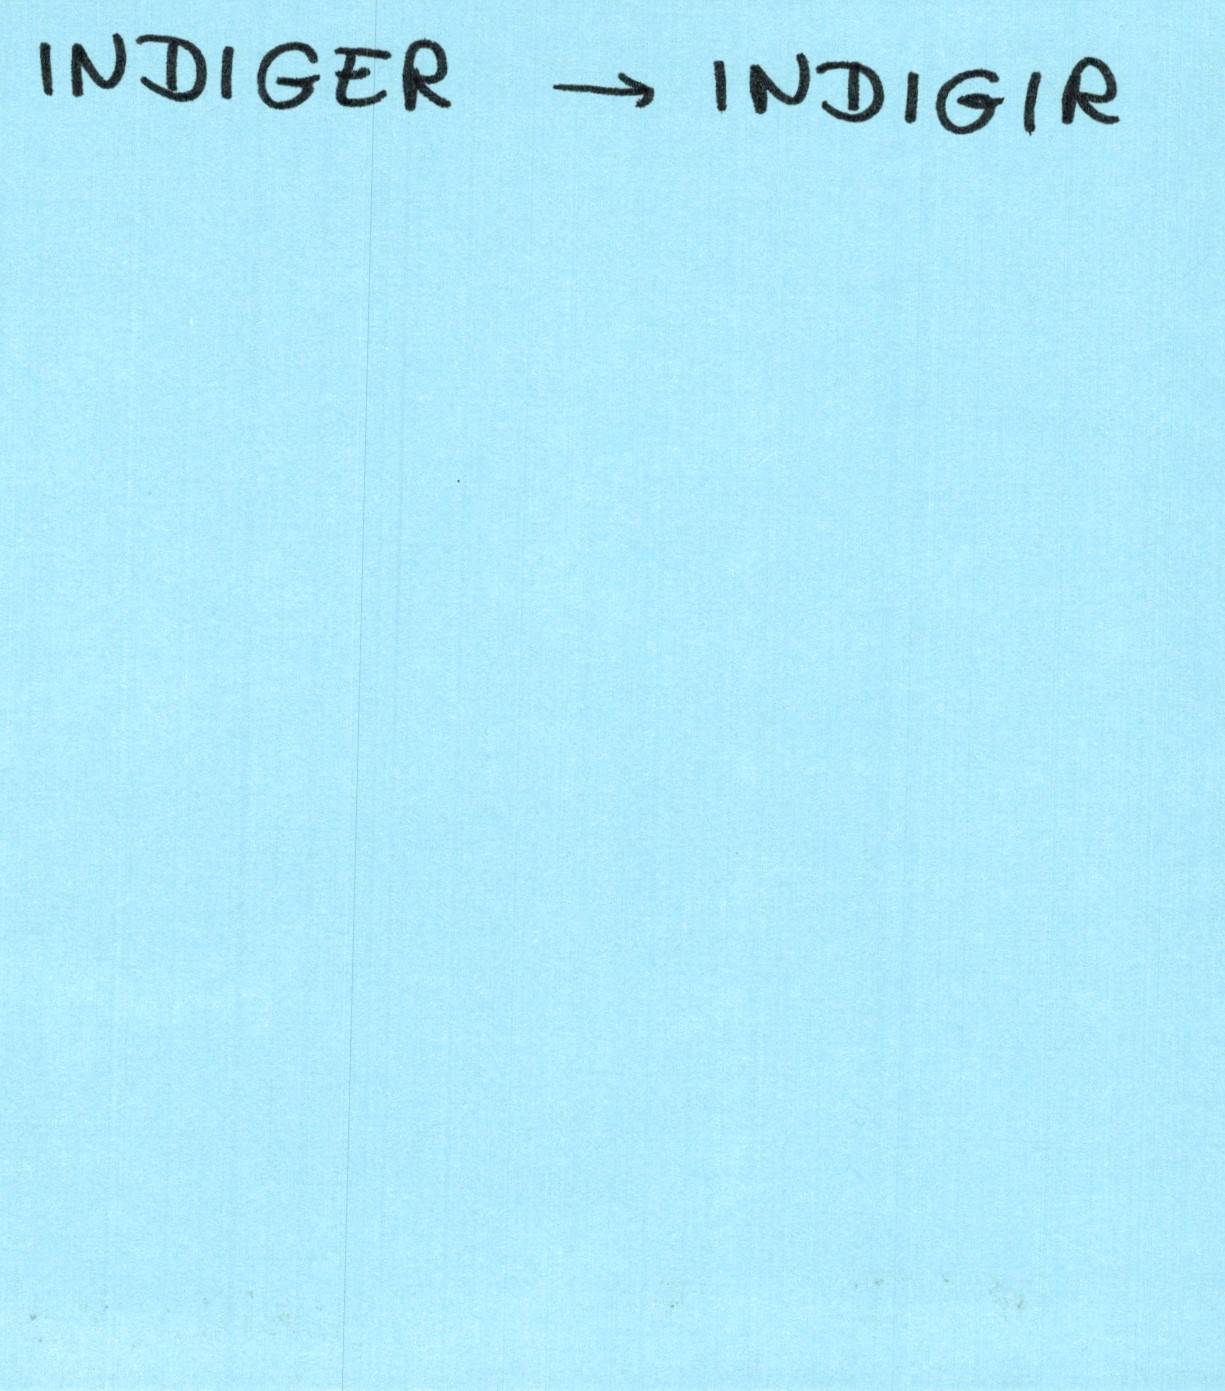 INDIGER → INDIGIR